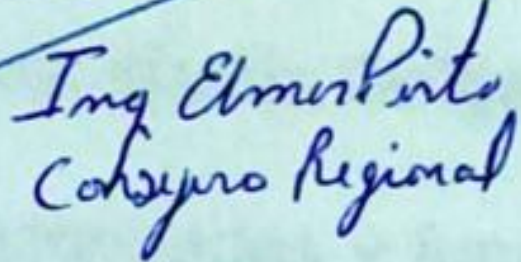 Ing Elmer Pinto
Consejero Regional